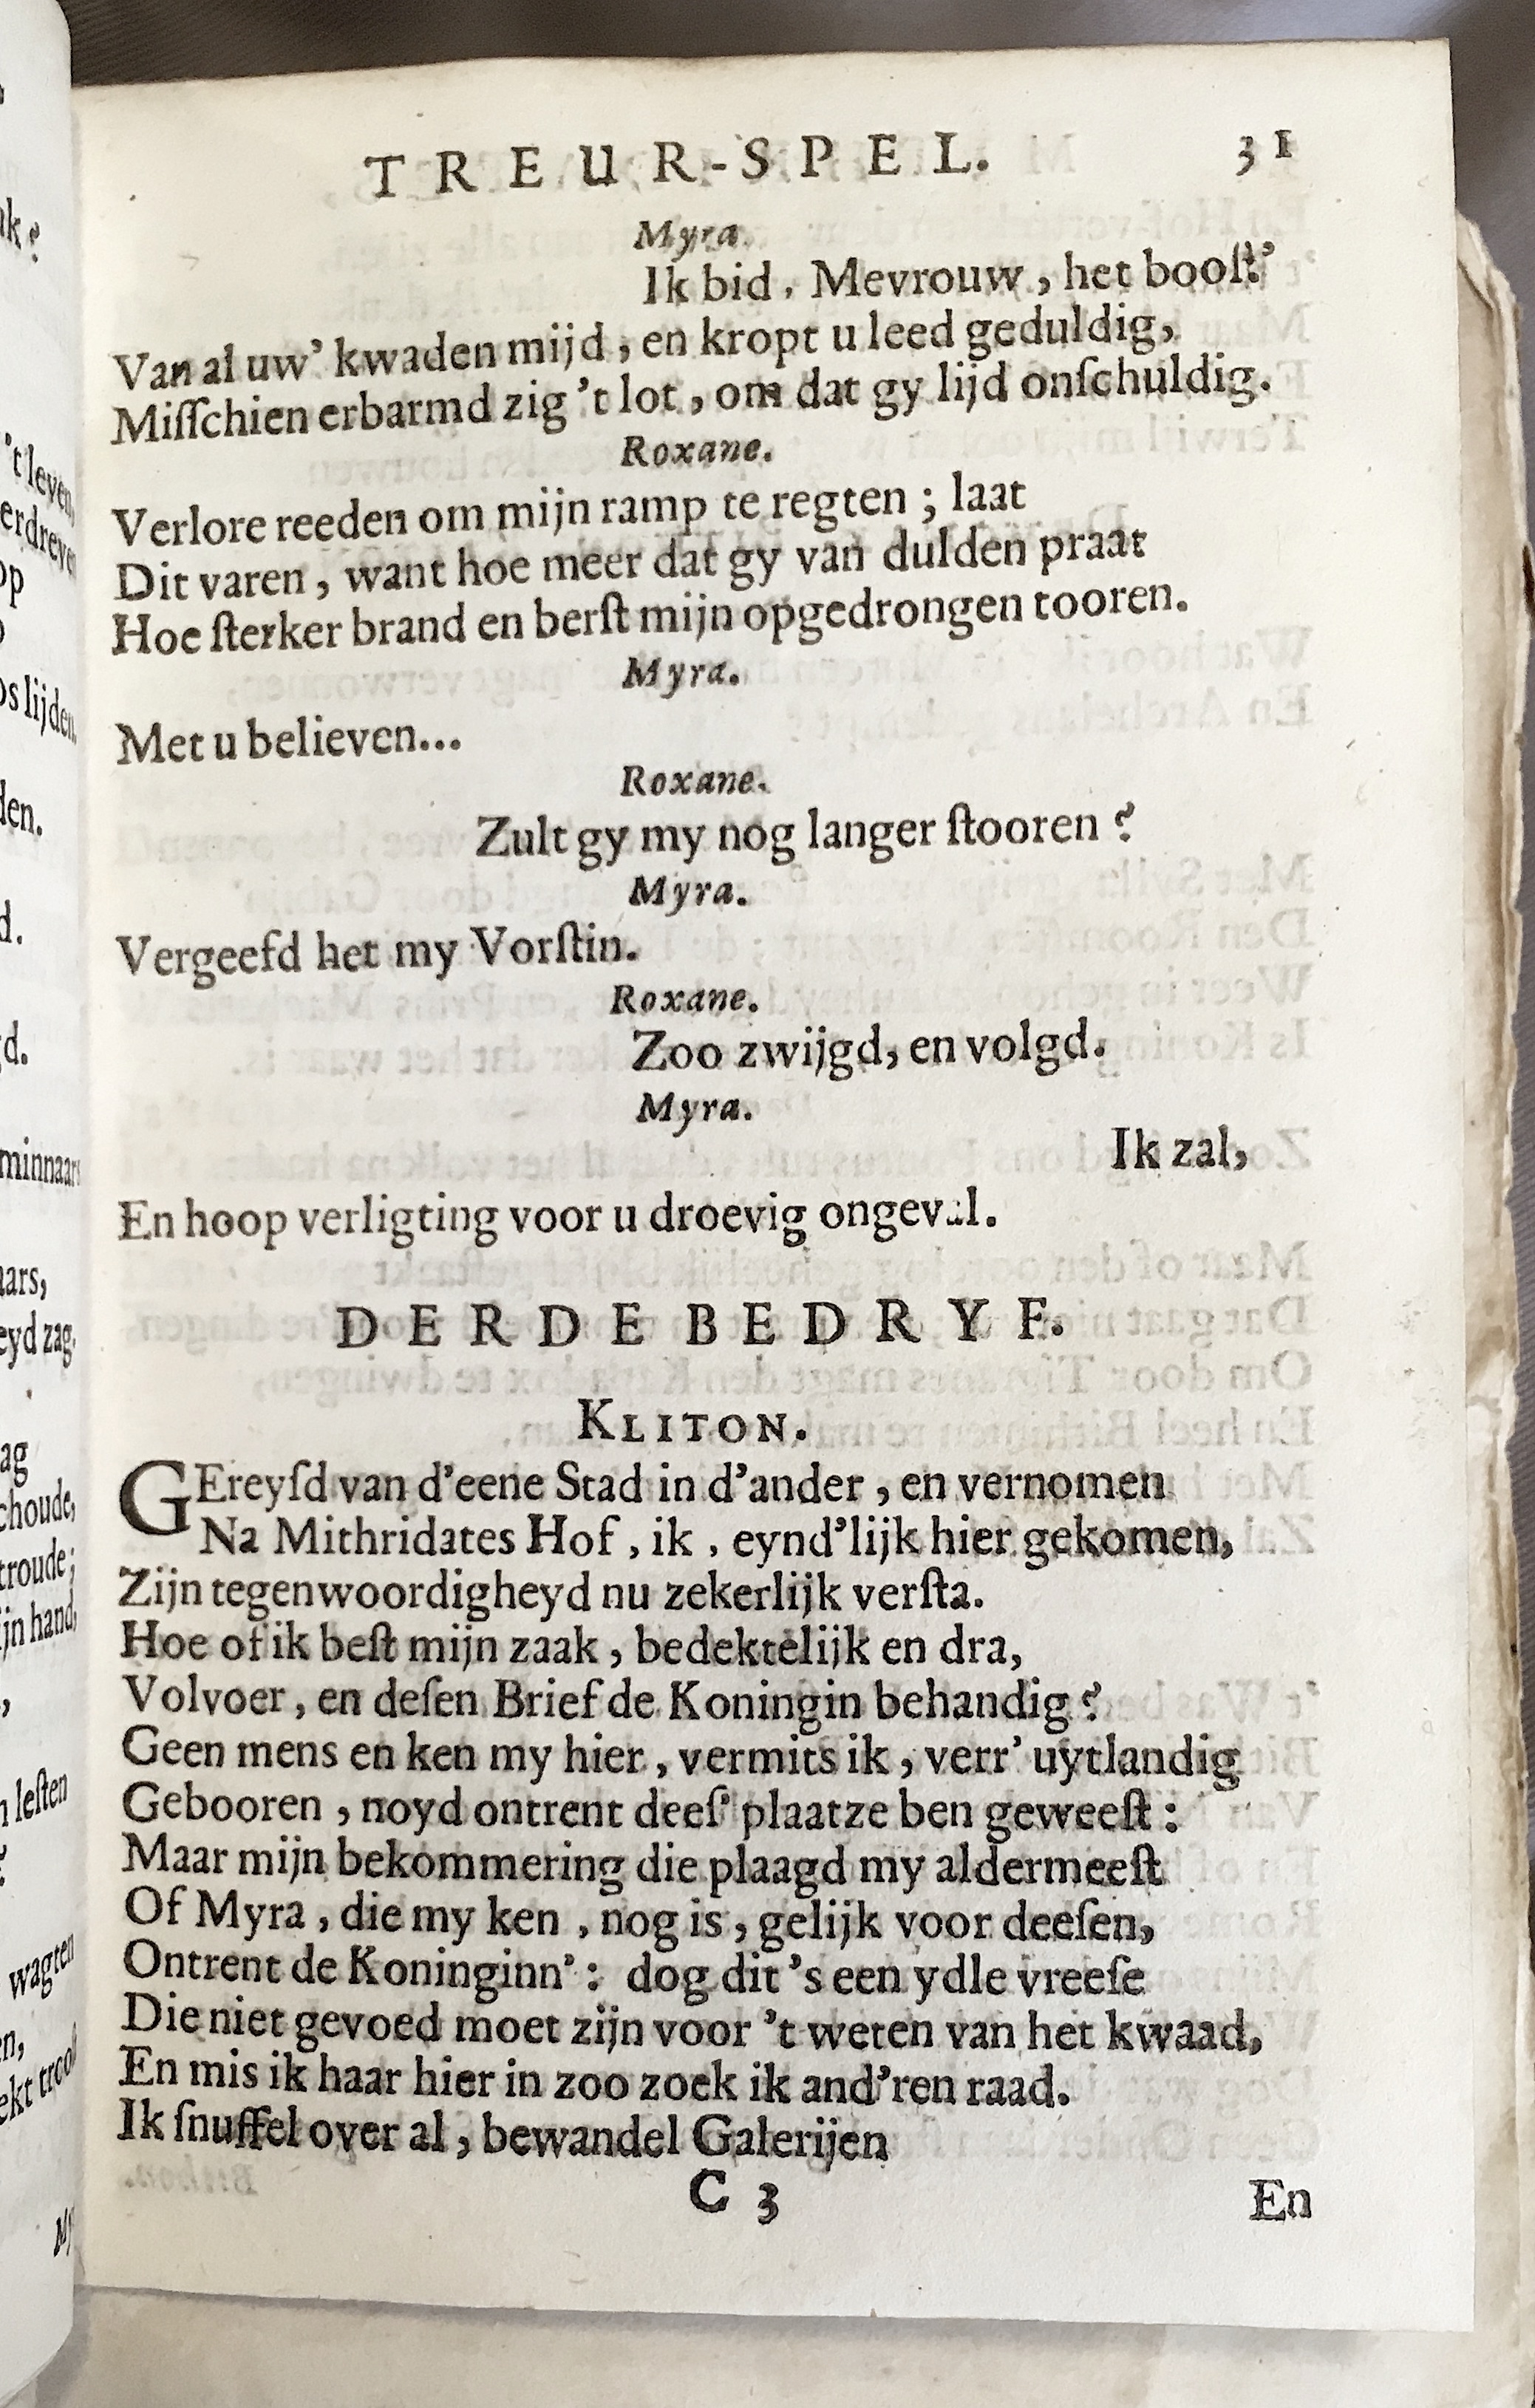 TREUR-SPEL. 31
Myra.
Ik bid, Mevrouw, het booſt'
Van al uw' kwaden mijd, en kropt u leed geduldig,
Miſſchien erbarmd zig 't lot, om dat gy lijd onſchuldig.
Roxane.
Verlore reeden om mijn ramp te regten; laat
Dit varen, want hoe meer dat gy van dulden praat
Hoe ſterker brand en berſt mijn opgedrongen tooren.
Myra.
Met u believen...
Roxane.
Zult gy my nog langer ſtooren?
Myra.
Vergeefd het my Vorſtin.
Roxane.
Zoo zwijgd, en volgd.
Myra.
Ik zal,
En hoop verligting voor u droevig ongeval.
DERDE BEDRYF.
KLITON.
GEreyſd van d'eene Stad in d'ander, en vernomen
Na Mithridates Hof, ik, eynd'lijk hier gekomen,
Zijn tegenwoordigheyd nu zekerlijk verſta.
Hoe of ik beſt mijn zaak, bedektelijk en dra,
Volvoer, en deſen Brief de Koningin behandig?
Geen mens en ken my hier, vermits ik, verr' uytlandig
Gebooren, noyd ontrent deeſ' plaatze ben geweeſt:
Maar mijn bekommering die plaagd my aldermeeſt
Of Myra, die my ken, nog is, gelijk voor deeſen,
Ontrent de Koninginn': dog dit 's een ydle vreeſe
Die niet gevoed moet zijn voor 't weten van het kwaad,
En mis ik haar hier in zoo zoek ik and'ren raad.
Ik ſnuffel over al, bewandel Galerijen
C 3 En